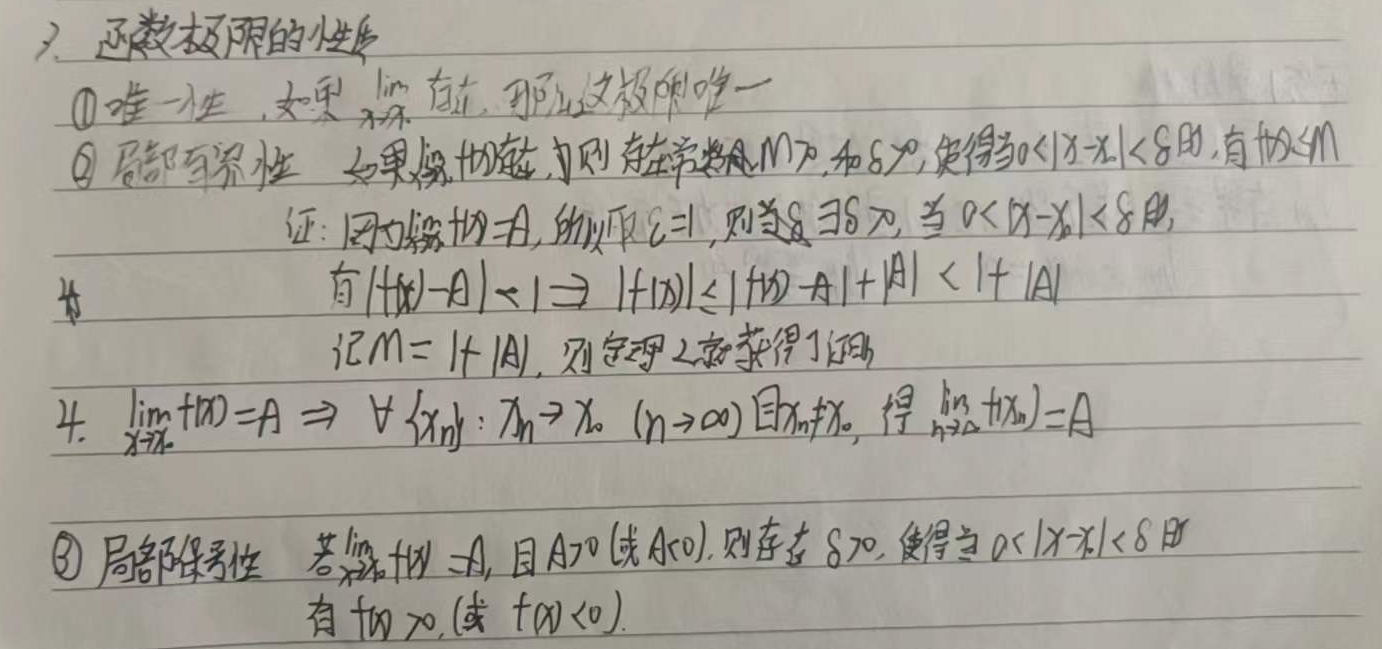 3. 函数极限的性质
① 唯一性，如果 lim x→x₀ 存在，那么这极限唯一
② 局部有界性 如果 lim x→x₀ f(x)存在，则存在常数 M>0，和δ>0，使得当0<|x-x₀|<δ时，有f(x)≤M
证：因为lim x→x₀ f(x)=A，所以取ε=1，则 ∃δ>0，当 0<|x-x₀|<δ时，
有|f(x)-A|<1⇒ |f(x)|≤|f(x)-A|+|A|<1+|A|
记M=1+|A|，则定理2就获得了证明
4. lim x→x₀ f(x)=A ⇒ ∀{xₙ}: xₙ→x₀ (n→∞)且xₙ≠x₀，得 lim n→∞ f(xₙ)=A
③ 局部保号性 若lim x→x₀ f(x)=A，且A>0(或A<0)，则存在δ>0，使得当0<|x-x₀|<δ时
有 f(x)>0，(或 f(x)<0).